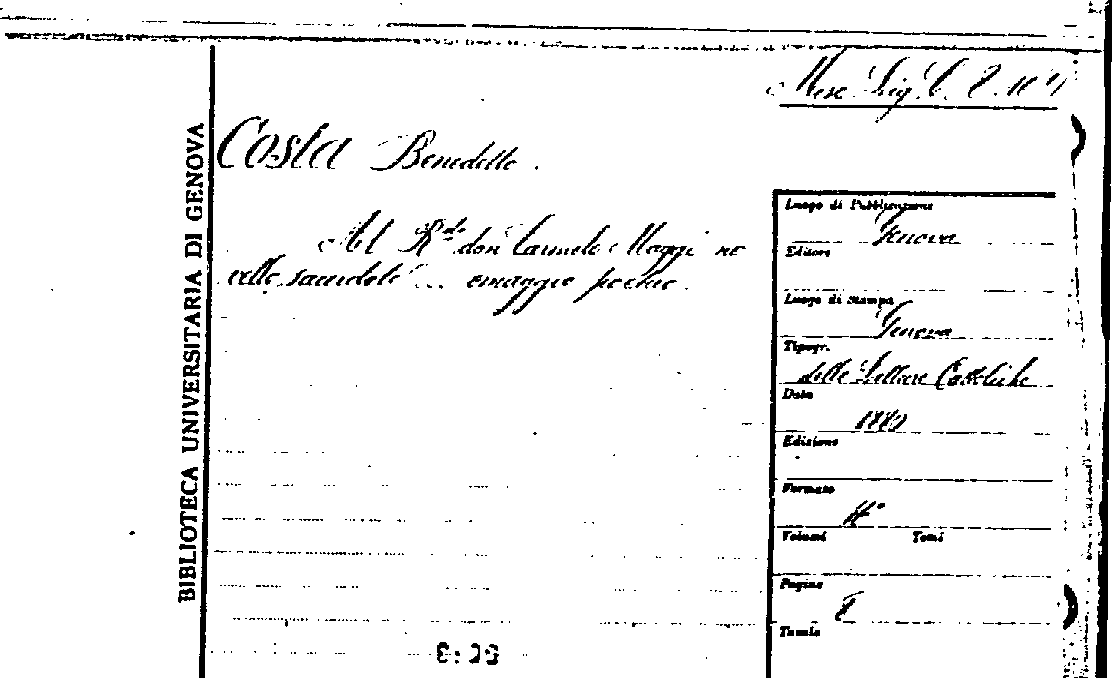 Misc. Lig. C. 8. 10
BIBLIOTECA UNIVERSITARIA DI GENOVA
Costa Benedetto.
Al R.do don Carmelo Maggi no
vello sacerdote ... omaggio poetico.
Luogo di Pubblicazione
Genova
Editore
Luogo di stampa
Genova
Tipogr.
delle Letture Cattoliche
Data
Edizione
Formato
4°
Volumi Tomi
Pagine
8
Tavole